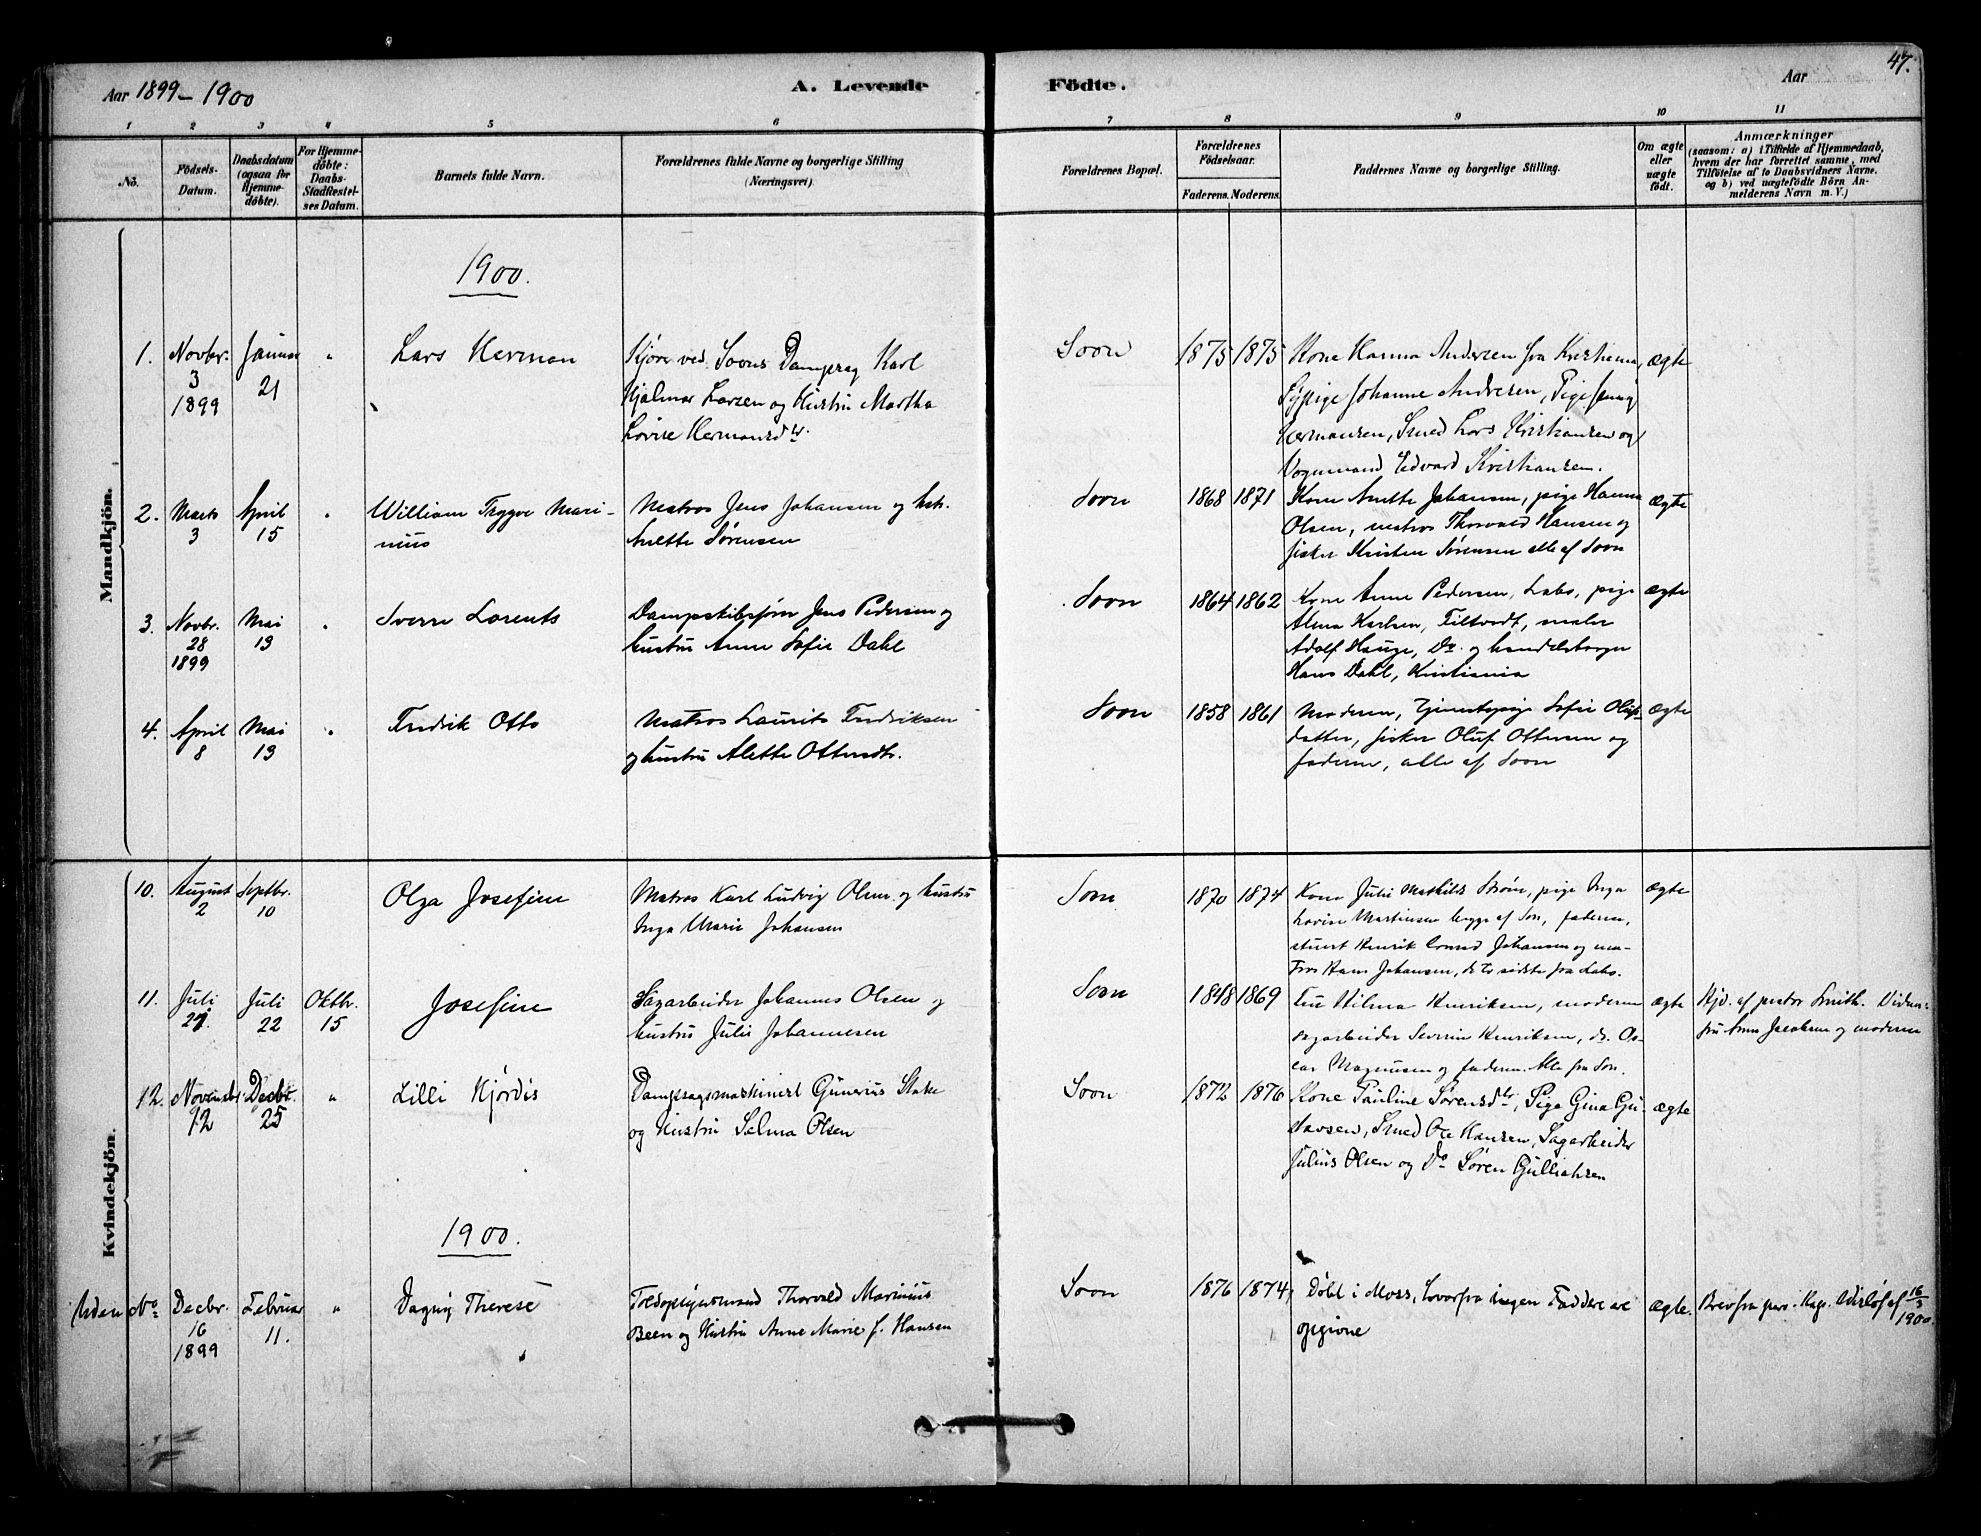 Aar 1899–1900
A. Levende
Födte.
Aar
47.
1 2 3 4 5 6 7 8 9 10 11
No.
Födsels-
Datum.
Daabsdatum
(ogsaa for
Hjemme-
döbte).
For Hjemme-
döbte:
Daabs-
Stadfæstel-
ses Datum.
Barnets fulde Navn.
Forældrenes fulde Navne og borgerlige Stilling
(Næringsvei).
Forældrenes Bopæl.
Forældrenes
Födselsaar.
Faderens. Moderens.
Faddernes Navne og borgerlige Stilling.
Om ægte
eller
uægte
födt.
Anmærkninger
(saasom: a) i Tilfælde af Hjemmedaab,
hvem der har forrettet samme, med
Tilföielse af to Daabsvidners Navne.
og b) ved uægtefödte Börn An-
melderens Navn m. V.)
Mandkjön.
1900.
1. Novbr.
3
1899
Januar
21
"
Lars Herman
Kjører ved Soons Dampsag Karl
Hjalmar Larsen og Hustru Martha
Lovise Hermansdtr.
Soon
1875 1875
Kone Hanna Andersen fra Kristiania,
Sypige Johanne Andresen, Pige Jenny
Hermansen, Smed Lars Kristiansen og
Vognmand Edvard Kristiansen.
ægte
2. Marts
3
April
15
"
William Trygve Mari-
nius
Matros Jens Johansen og hstr.
Anette Sørensen
Soon
1868 1871
Kone Anette Johansen, pige Hanna
Olsen, matros Thorvald Hansen og
fisker Kristen Sørensen alle af Soon
ægte
3. Novbr.
28
1899
Mai
13
"
Sverre Lorents
Dampskibsfører Jens Pedersen og
hustru Anne Sofie Dahl
Soon
1864 1862
Kone Anne Pedersen, Labo, pige
Alma Karlsen, Filtvedt, maler
Adolf Hauge, Do. og handelsborger
Hans Dahl, Kristiania
ægte
4. April
8
Mai
13
"
Fredrik Otto
Matros Laurits Fredriksen
og hustru Alette Ottersdtr.
Soon
1858 1861
Moderen, Tjenestepige Sofie Olufs-
datter, fisker Oluf Ottersen og
faderen, alle af Soon
ægte
Kvindekjön.
10. August
2
Septbr.
10
Olga Josefine
Matros Karl Ludvig Olsen og hustru
Inga Marie Johansen
Soon
1870 1874
Kone Julie Mathilde Strøm, pige Inga
Lovise Martinsen begge af Son, faderen,
stuert Henrik Conrad Johansen og ma-
tros Hans Johansen, de to sidste fra Labo.
ægte
11. Juli
21.
Juli
22
Oktbr.
15
Josefine
Sagarbeider Johannes Olsen og
hustru Julie Johannesen
Soon
1848 1869
Fru Hilma Henriksen, moderen
sagarbeider Severin Henriksen, do. Os-
car Magnusen og faderen. Alle fra Son.
ægte
Hjd. af pastor Smith. Vidner:
fru Anna Jacobsen og moderen
12. Novembr
12
Decbr.
25
"
Lilli Hjørdis
Dampsagsmaskinist Gunerius Stake
og Hustru Salma Olsen
Soon
1872 1876
Kone Pauline Sørensdtr, Pige Gina Gu-
stavsen, Smed Ole Hansen, Sagarbeider
Julius Olsen og Do Søren Gulliksen
ægte
1900.
Uden No
Decbr.
16
1899
Februar
11.
"
Dagny Therese
Toldopsynsmand Thorvald Marinius
Been og Hustru Anne Marie f. Hansen
Soon
1876 1874
Døbt i Moss, hvorfra ingen Faddere er
opgivne
ægte.
Brev fra pers. Kap. Wisløf af 16/3
1900.